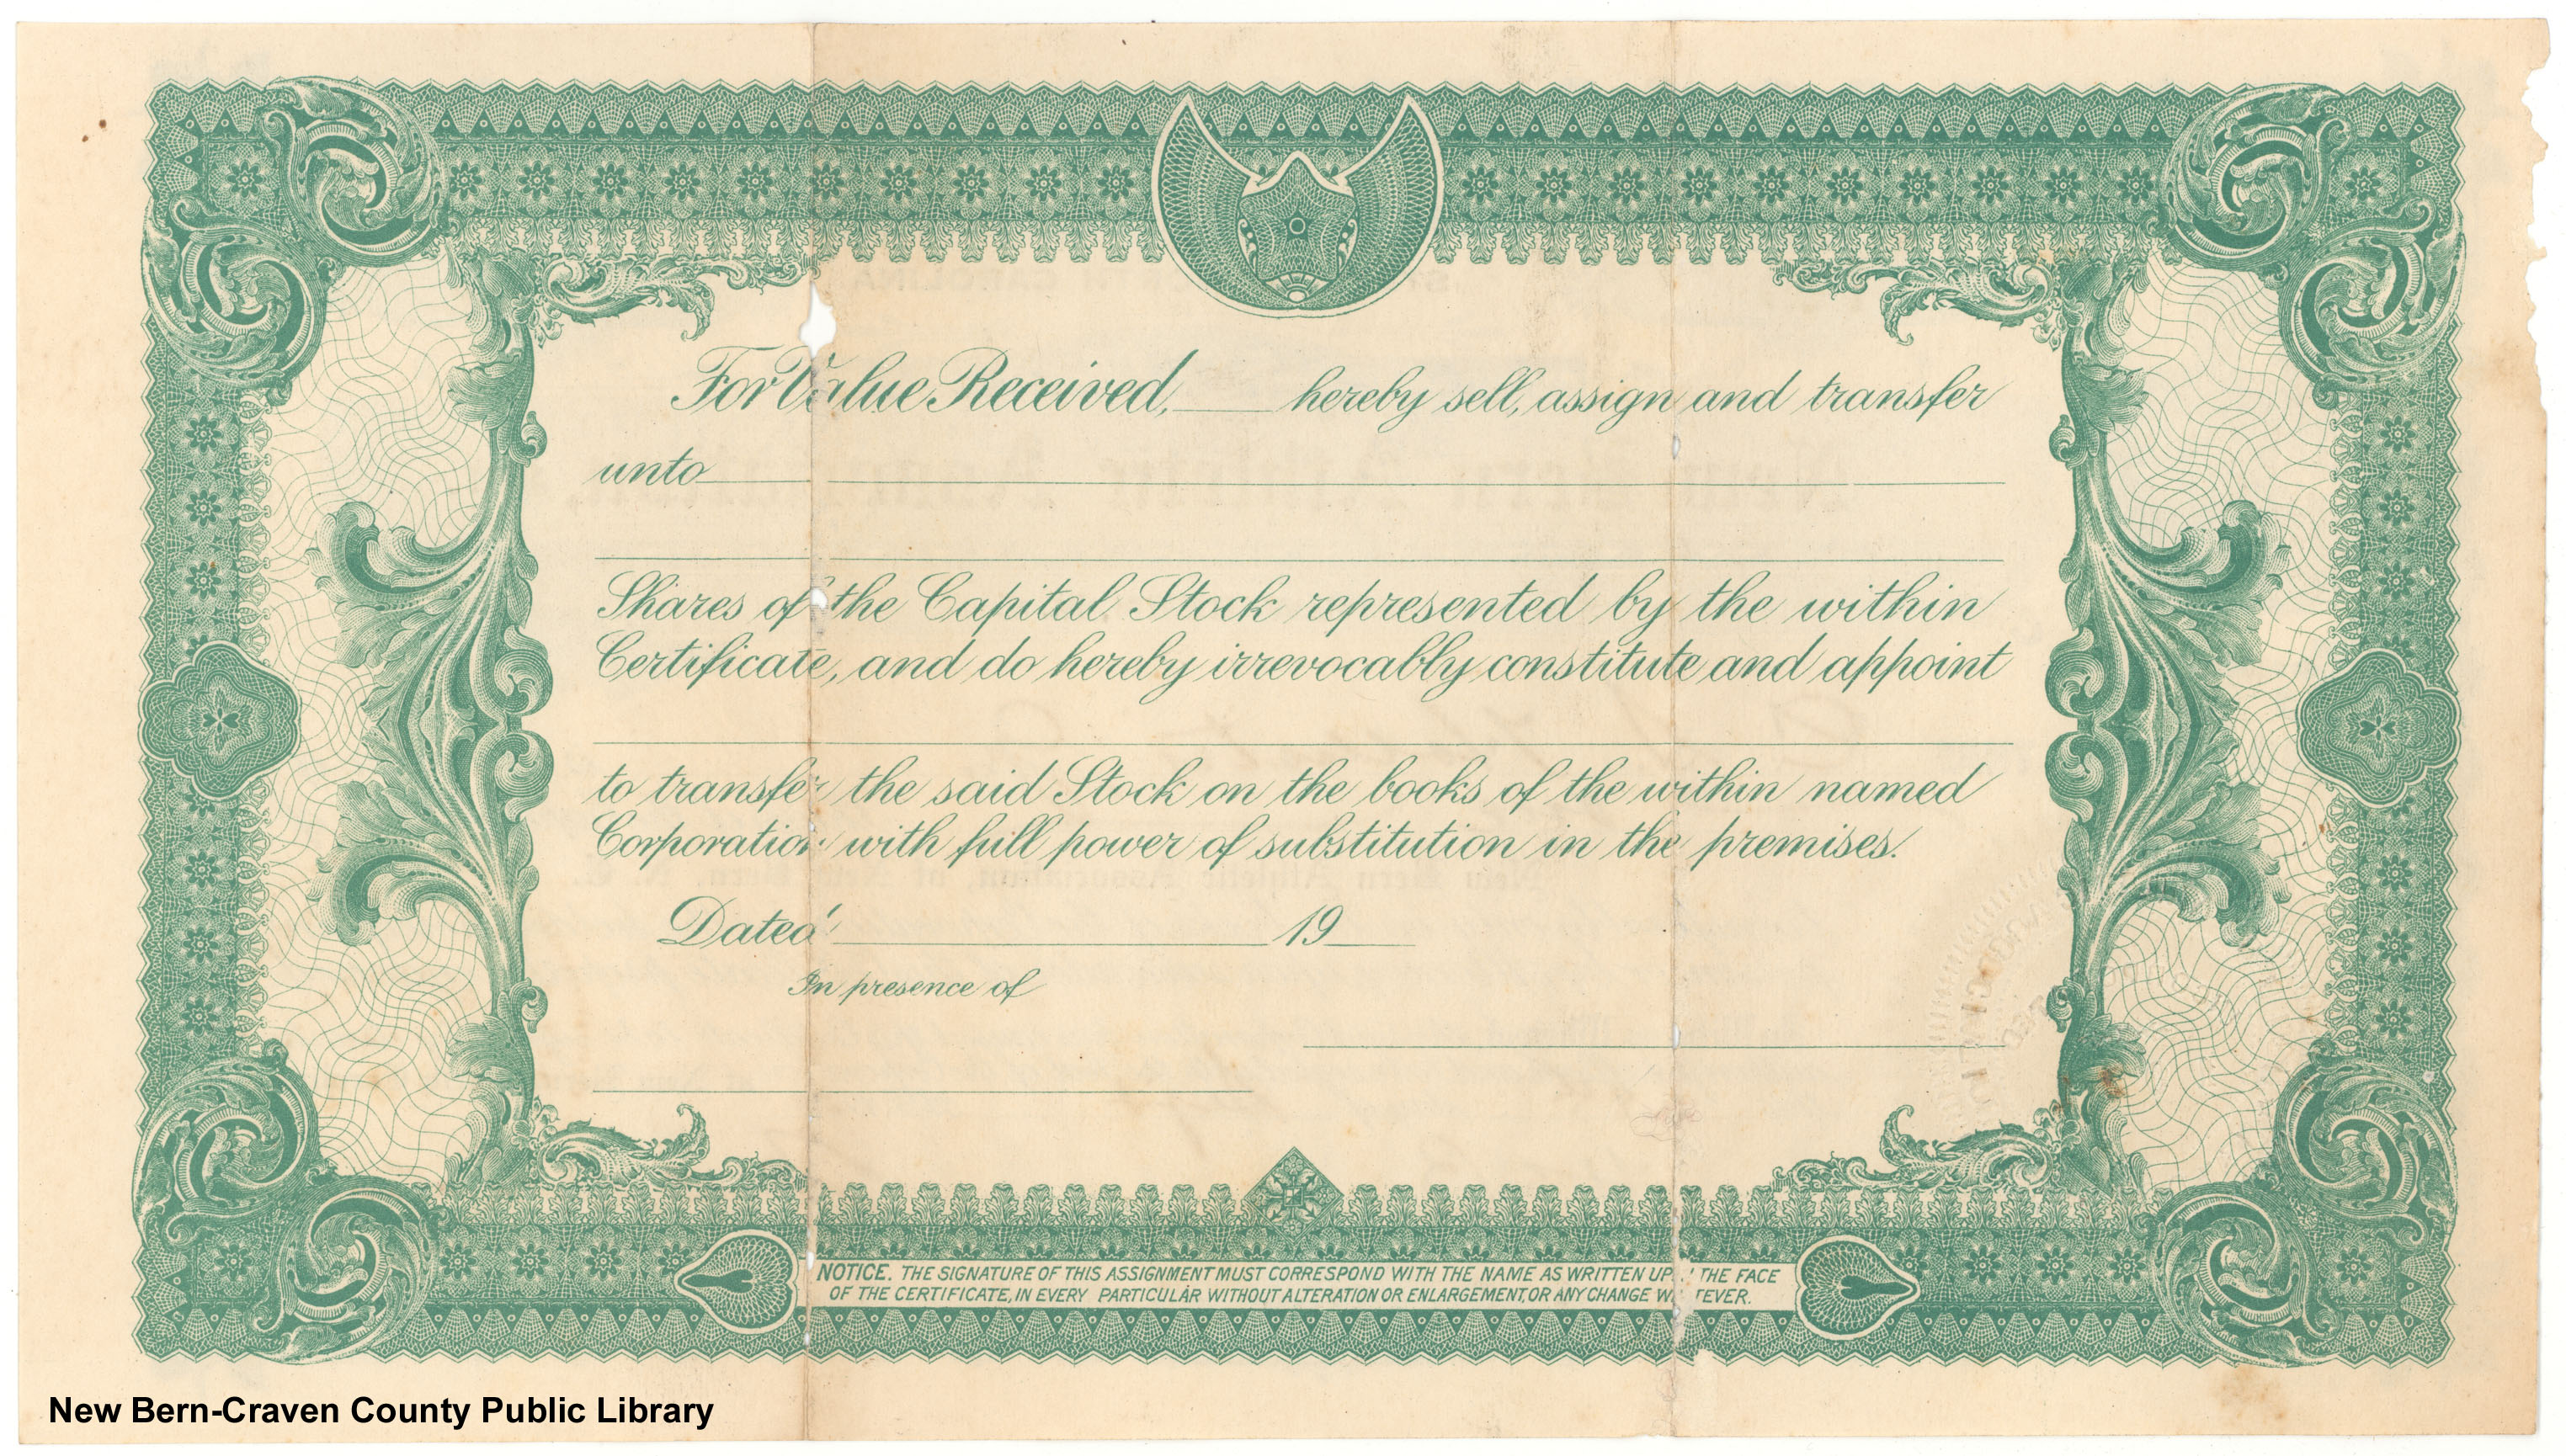 For Value Received, hereby sell, assign and transfer
unto
Shares of the Capital Stock represented by the within
Certificate, and do hereby irrevocably constitute and appoint
to transfer the said Stock on the books of the within named
Corporation with full power of substitution in the premises.
Dated 19
In presence of
NOTICE. THE SIGNATURE OF THIS ASSIGNMENT MUST CORRESPOND WITH THE NAME AS WRITTEN UPON THE FACE
OF THE CERTIFICATE, IN EVERY PARTICULAR WITHOUT ALTERATION OR ENLARGEMENT, OR ANY CHANGE WHATEVER.
New Bern-Craven County Public Library